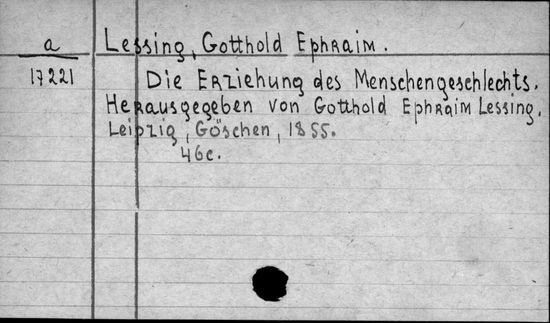 a Lessing, Gotthold Ephraim.
17221 Die Erziehung des Menschengeschlechts.
Herausgegeben von Gotthold Ephraim Lessing.
Leipzig, Göschen, 1855.
46c.